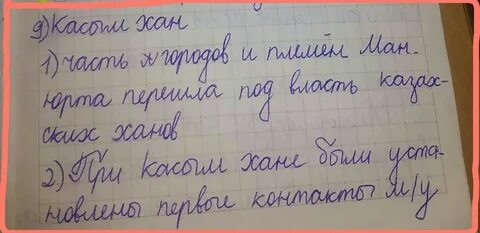 9) Касым хан
1) часть х городов и племён Ман-
юрта перешла под власть казах-
ских ханов
2) При Касым хане были уста-
новлены первые контакты м/у